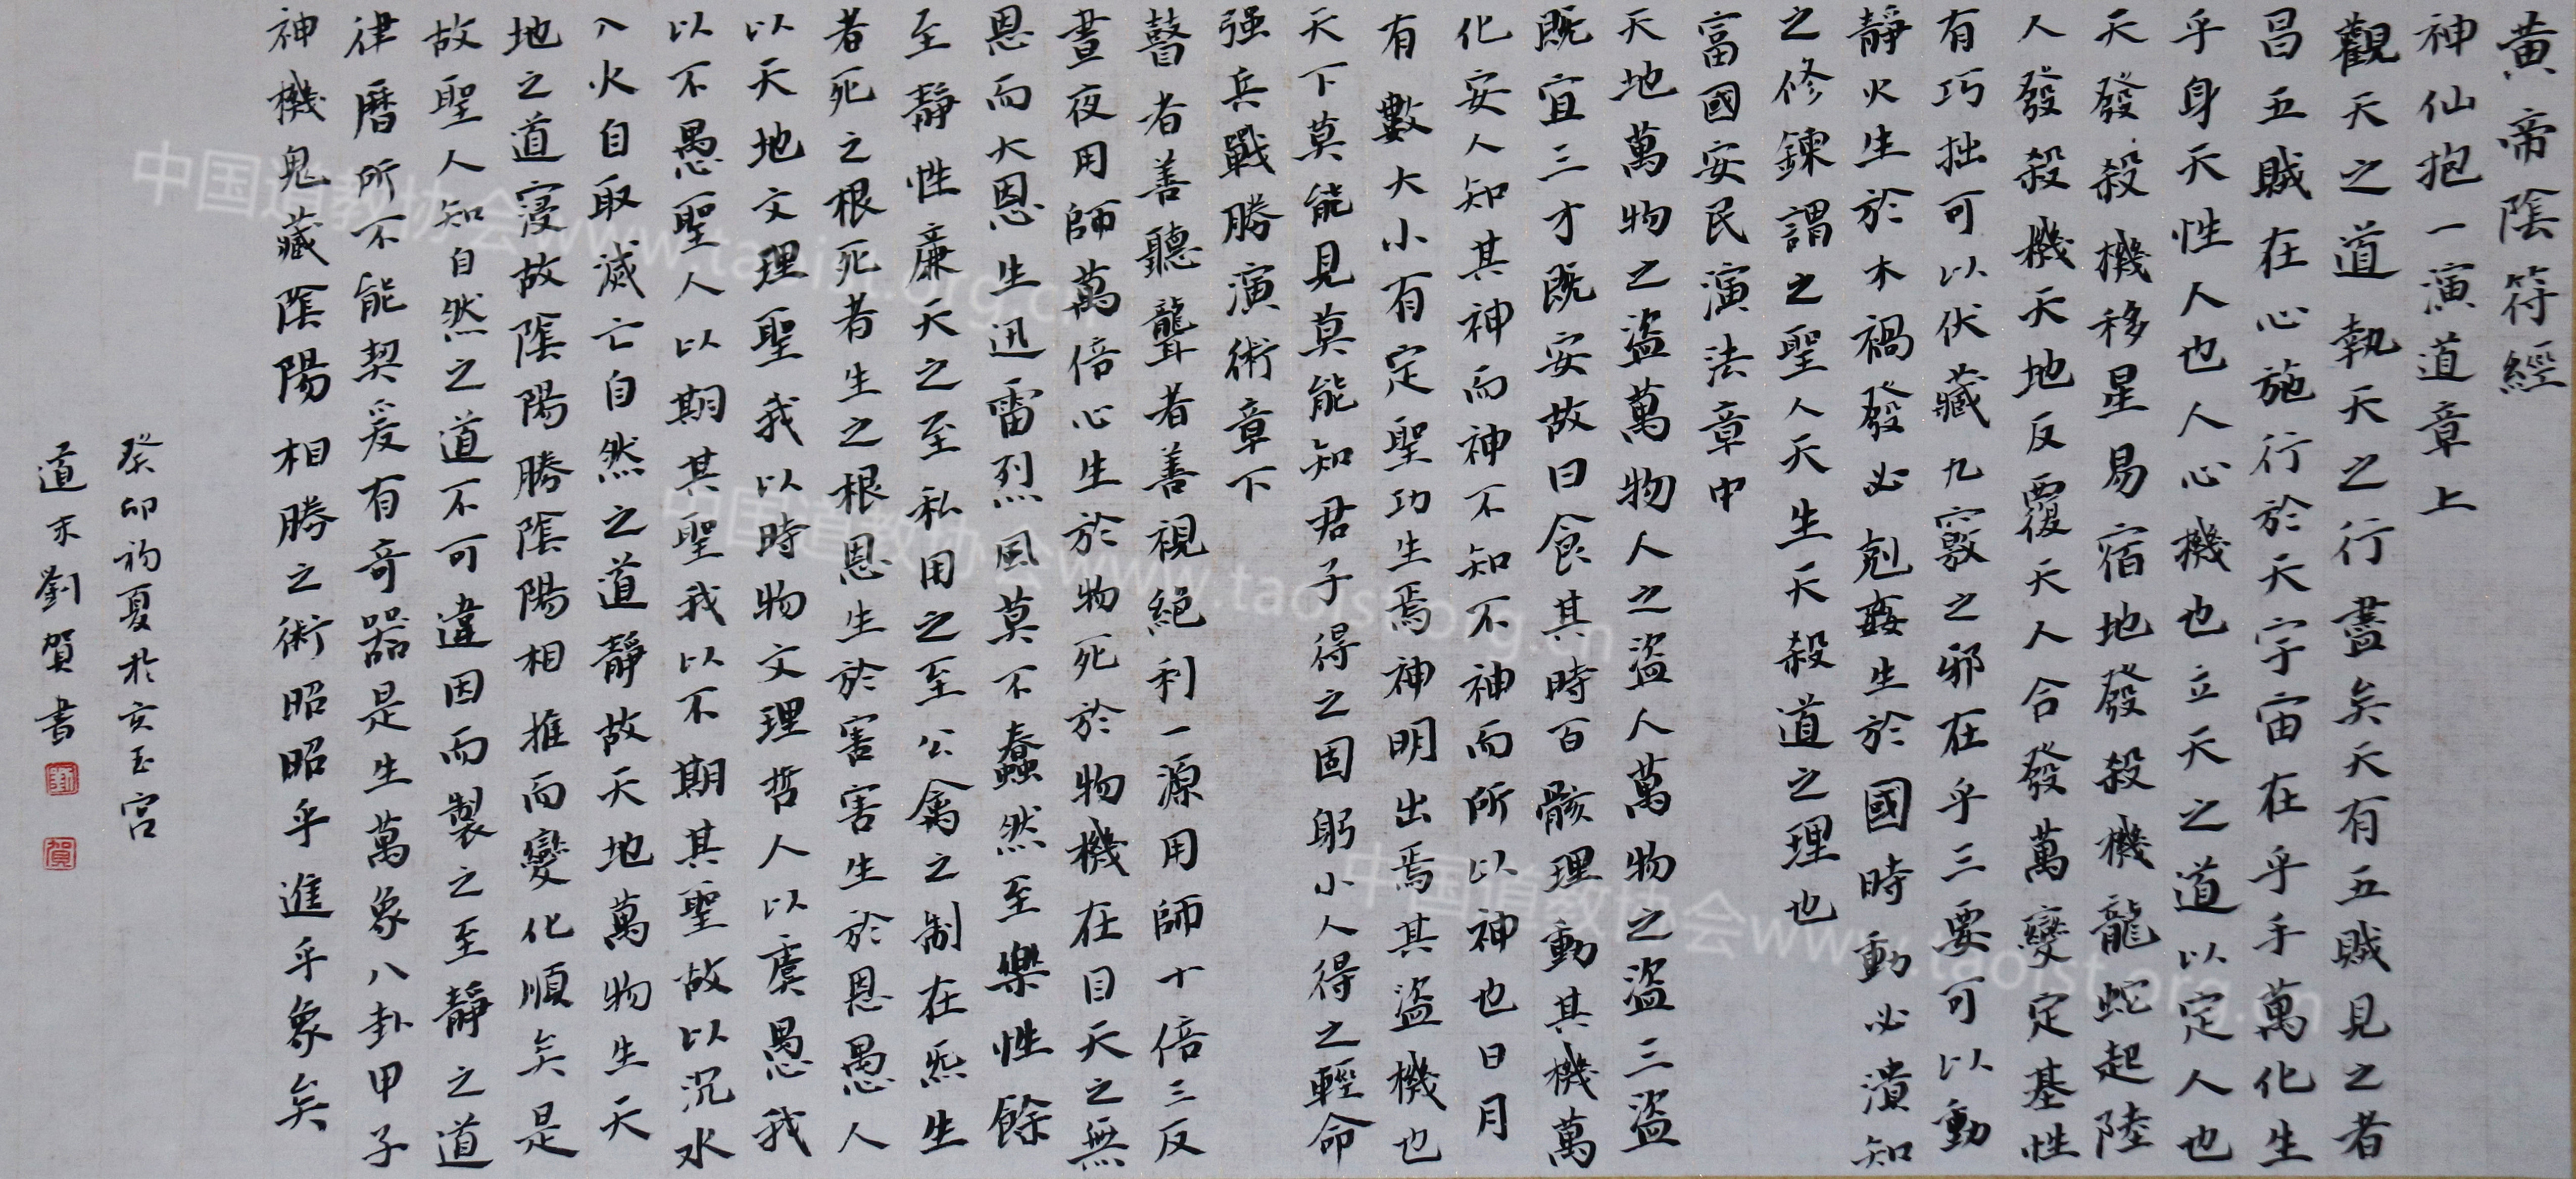 黃帝陰符經
神仙抱一演道章上
觀天之道執天之行盡矣天有五賊見之者
昌五賊在心施行於天宇宙在乎手萬化生
乎身天性人也人心機也立天之道以定人也
天發殺機移星易宿地發殺機龍蛇起陸
人發殺機天地反覆天人合發萬變定基性
有巧拙可以伏藏九竅之邪在乎三要可以動
靜火生於木禍發必剋姦生於國時動必潰知
之修鍊謂之聖人天生天殺道之理也
富國安民演法章中
天地萬物之盜萬物人之盜人萬物之盜三盜
既宜三才既安故曰食其時百骸理動其機萬
化安人知其神而神不知不神而所以神也日月
有數大小有定聖功生焉神明出焉其盜機也
天下莫能見莫能知君子得之固躬小人得之輕命
强兵戰勝演術章下
瞽者善聽聾者善視絕利一源用師十倍三反
晝夜用師萬倍心生於物死於物機在目天之無
恩而大恩生迅雷烈風莫不蠢然至樂性餘
至靜性廉天之至私用之至公禽之制在炁生
者死之根死者生之根恩生於害害生於恩愚人
以天地文理聖我以時物文理哲人以虞愚我
以不愚聖人以期其聖我以不期其聖故以沉水
入火自取滅亡自然之道靜故天地萬物生天
地之道寖故陰陽勝陰陽相推而變化順矣是
故聖人知自然之道不可違因而製之至靜之道
律曆所不能契爰有奇器是生萬象八卦甲子
神機鬼藏陰陽相勝之術昭昭乎進乎象矣
癸卯初夏於玄玉宮
道末劉賀書
劉
賀
中国道教协会www.taoist.org.cn
中国道教协会www.taoist.org.cn
中国道教协会www.taoist.org.cn